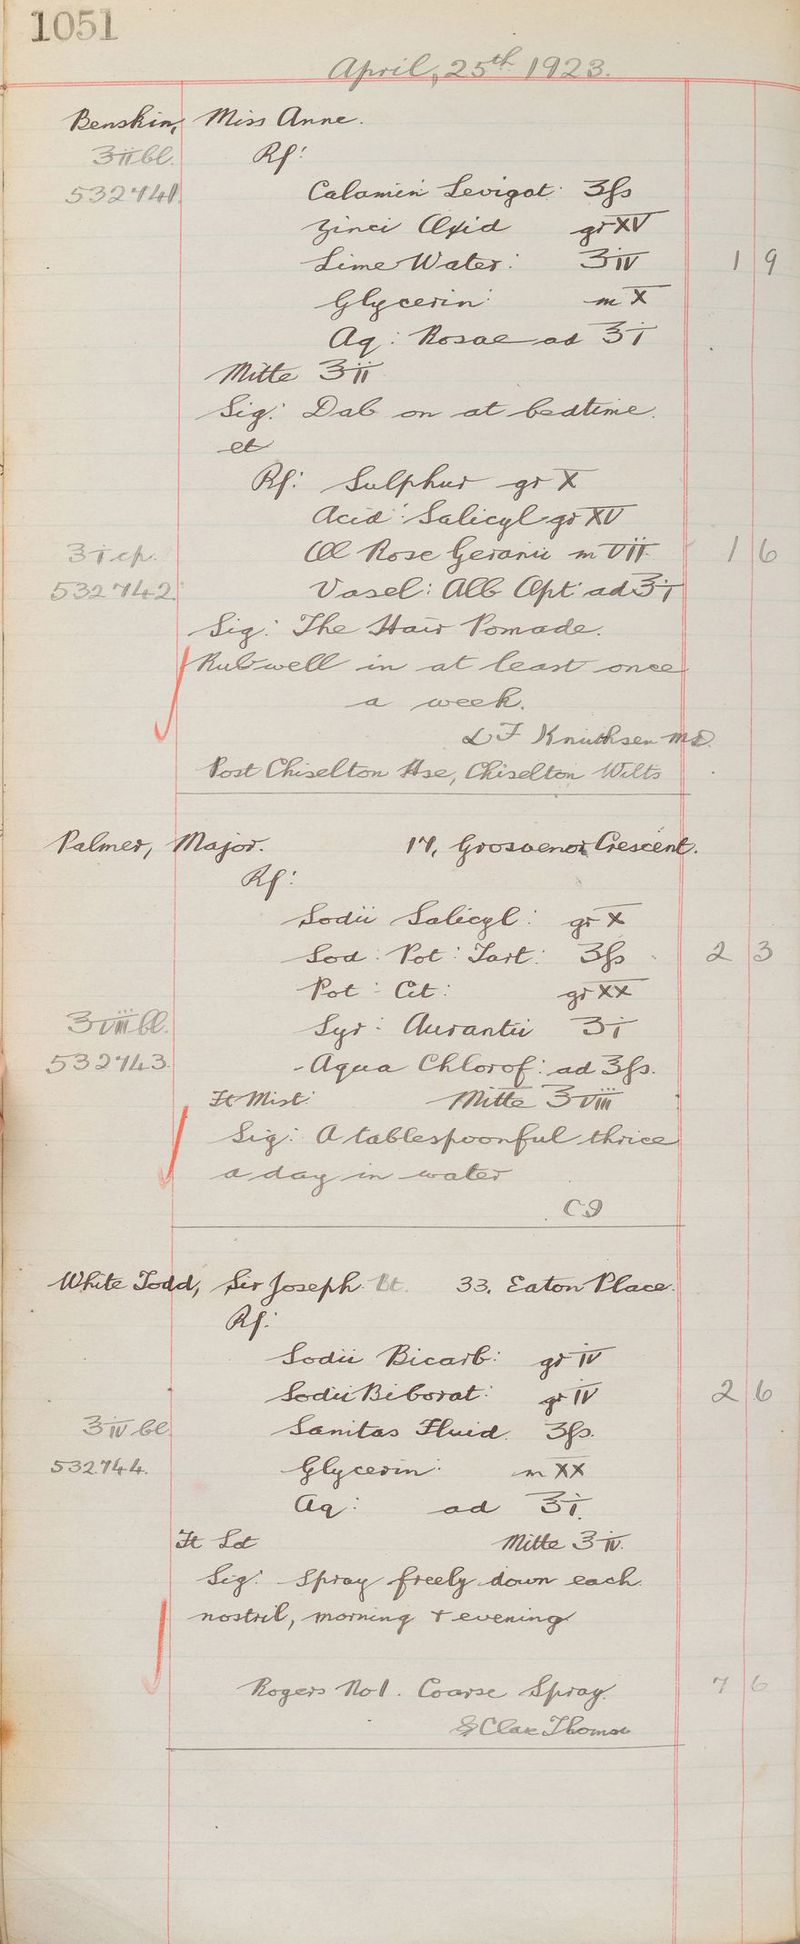 1051
April, 25th 1923.
Benskin, Miss Anne.
℥ii bl. Rf:
532741. Calamin Levigat: ʒſs
Zinci Oxid gr XV
Lime Water: ʒiv 1 9
Glycerin: m X
Aq: Rosae ad ℥i
Mitte ℥ii
Sig: Dab on at bedtime.
et
Rf: Sulphur gr X
Acid: Salicyl gr XV
℥i cp. Ol Rose Geranii m VII 1 6
532742. Vasel: Alb Opt: ad ℥i
Sig: The Hair Pomade.
Rub well in at least once
a week.
L F Knuthsen MD.
Post Chiselton Hse, Chiselton Wilts
Palmer, Major. 17, Grosvenor Crescent.
Rf:
Sodii Salicyl: gr X
Sod: Pot: Tart: ʒſs 2 3
Pot: Cit: gr XX
℥viii bl. Syr: Aurantii ʒi
532743. Aqua Chlorof: ad ℥ſs.
Ft Mist: Mitte ℥viii
Sig: A tablespoonful thrice
a day in water
White Todd, Sir Joseph Bt. 33. Eaton Place.
Rf:
Sodii Bicarb: gr IV
Sodii Biborat: gr IV 2 6
℥iv bl Sanitas Fluid. ʒſs.
532744. Glycerin: m XX
Aq: ad ℥i.
Ft Lot Mitte ℥iv.
Sig: Spray freely down each
nostril, morning & evening
Rogers No 1. Coarse Spray. 7 6
St Clair Thomson